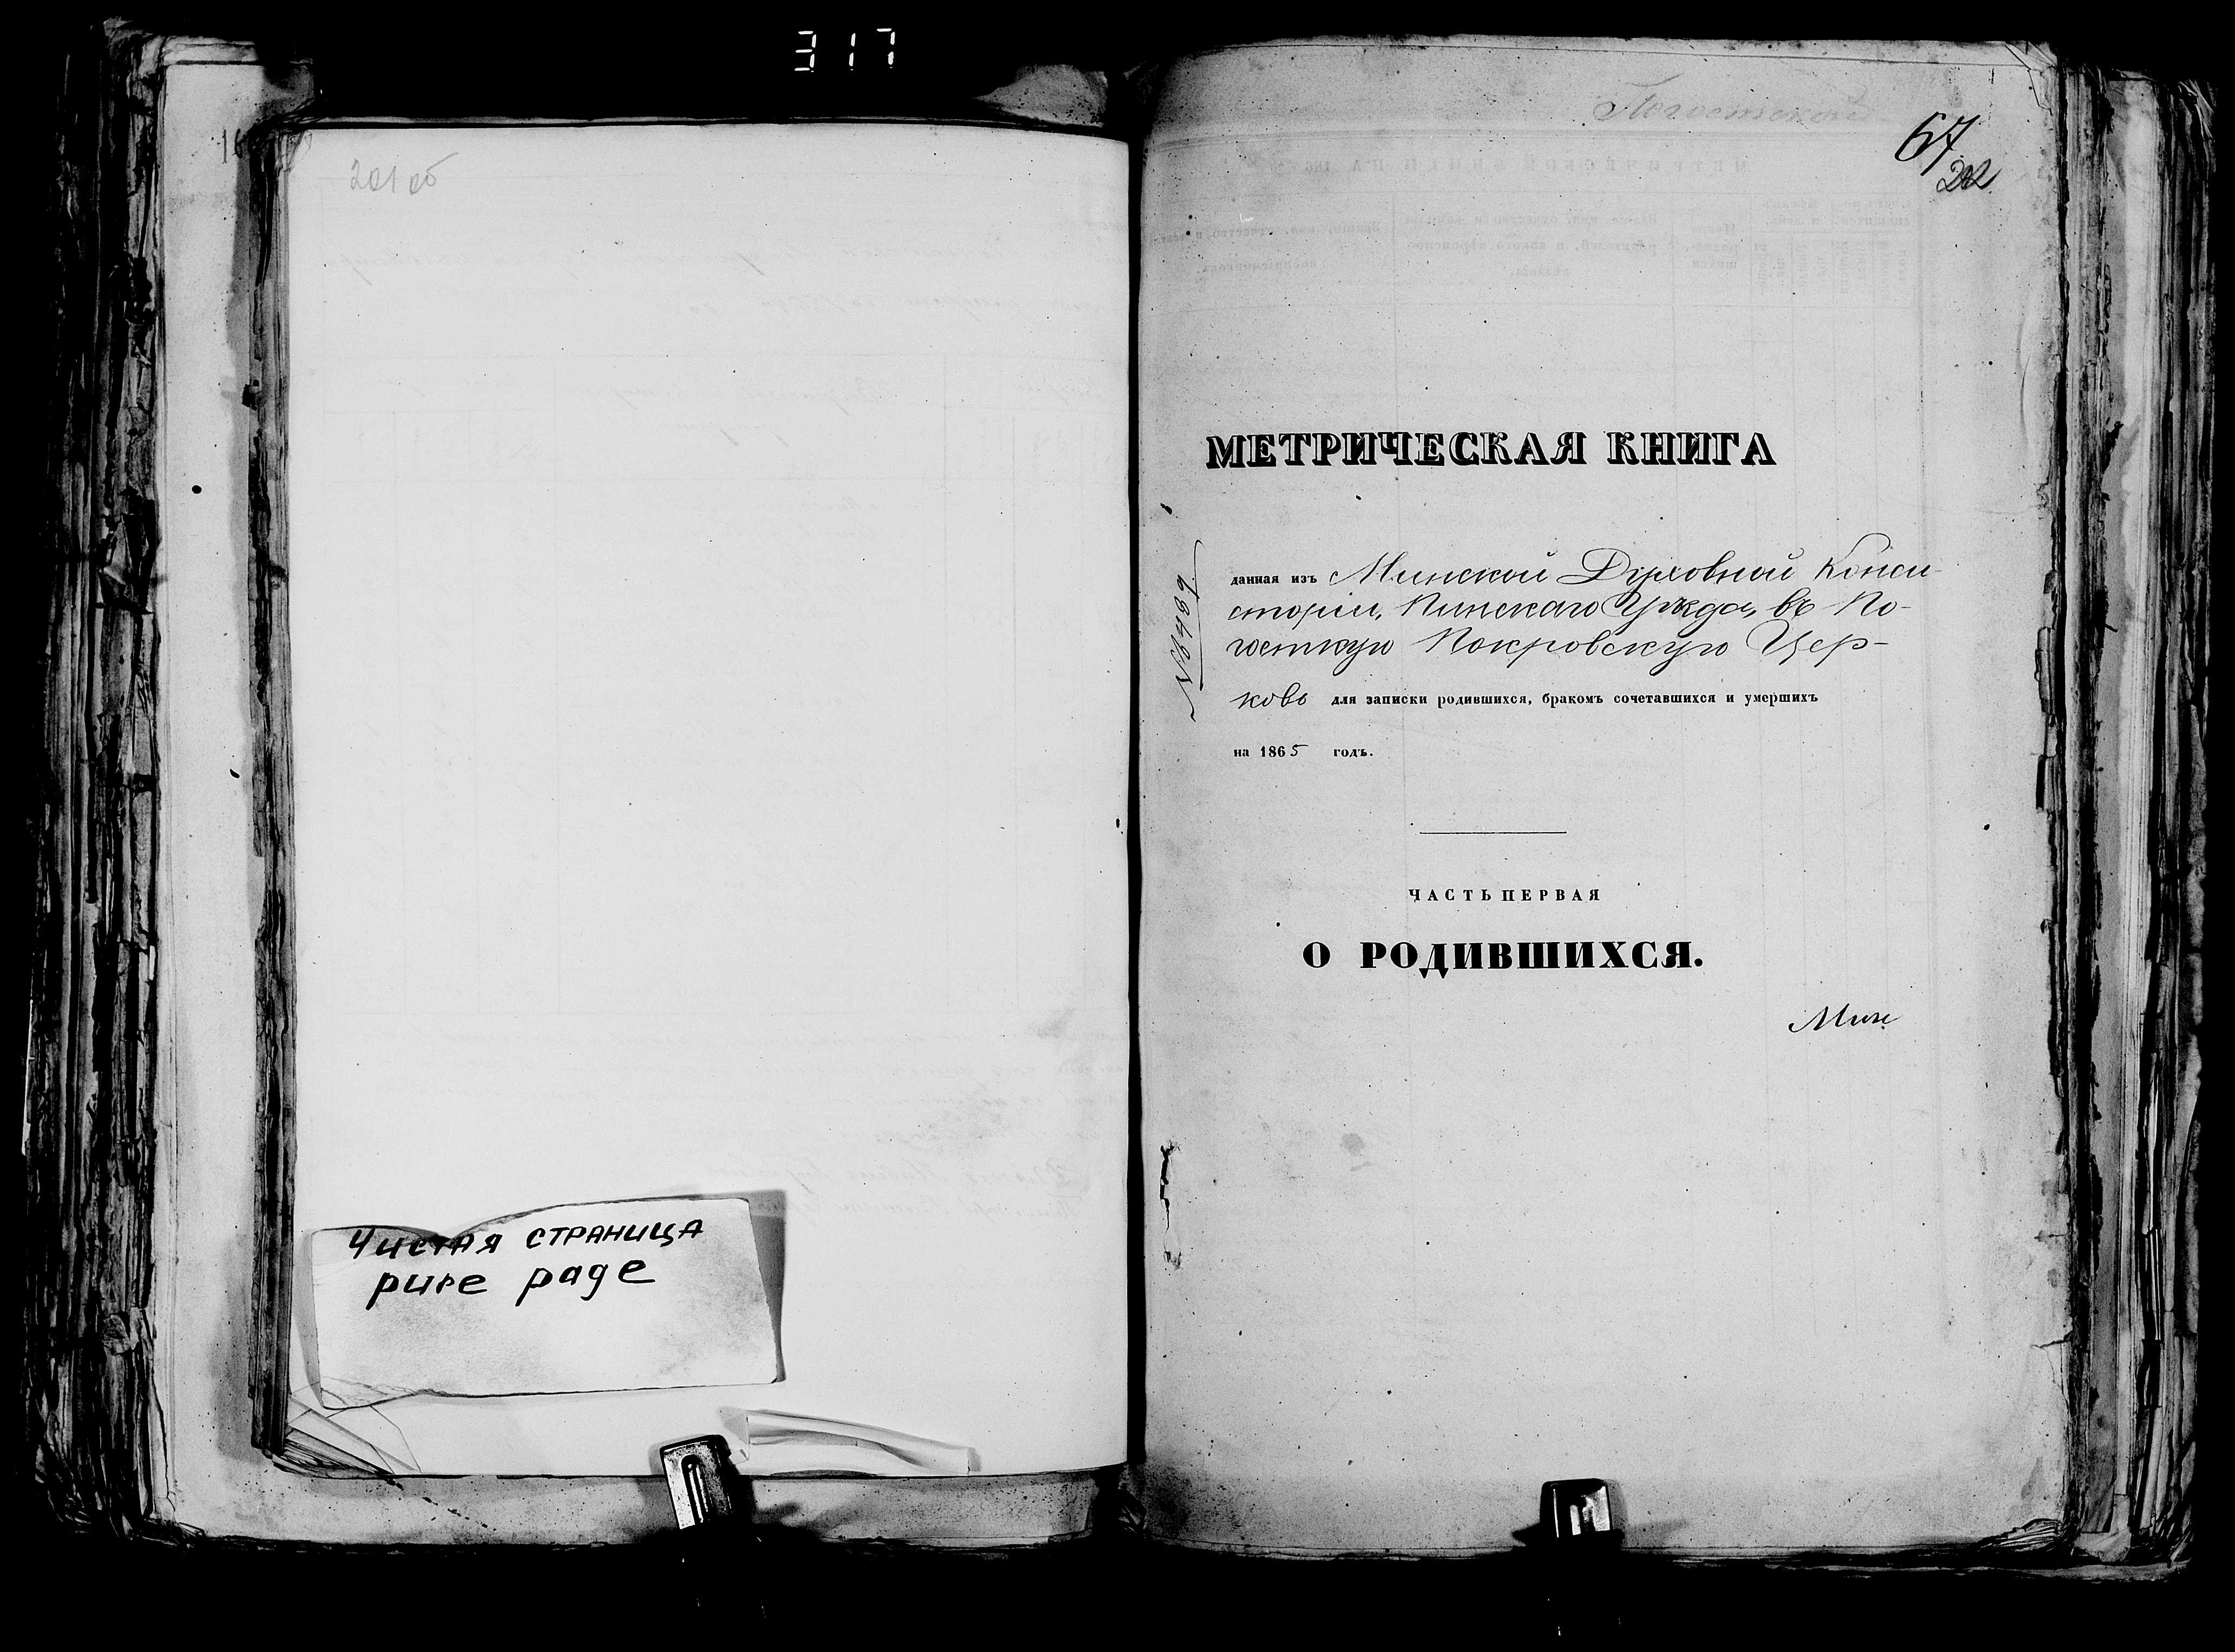 317
201 об
Чистая страница
pure page
Погостской
67
202
МЕТРИЧЕСКАЯ КНИГА
№ 6489
данная изъ Минской Духовной Конси-
сторіи, Пинскаго Уѣзда, въ По-
госткую Покровскую Цер-
ковь для записки родившихся, бракомъ сочетавшихся и умершихъ
на 1865 годъ.
ЧАСТЬ ПЕРВАЯ
О РОДИВШИХСЯ.
Мин